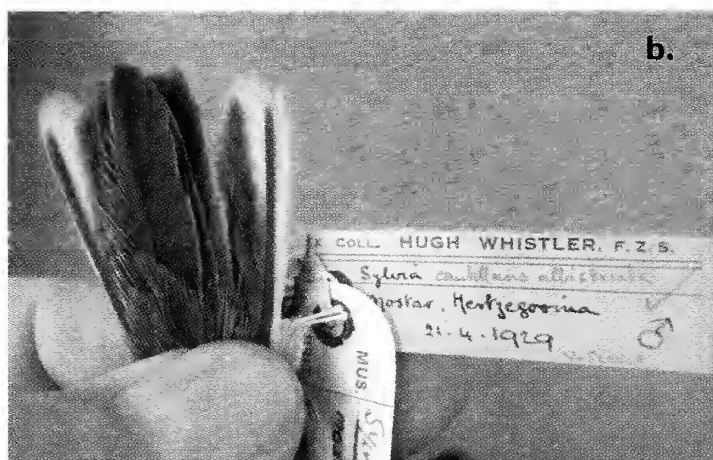 b.
COLL. HUGH WHISTLER. F.Z.S.
Sylvia cantillans albistriata
Mostar, Hertzegovina
21.4.1929
♂
MUS.